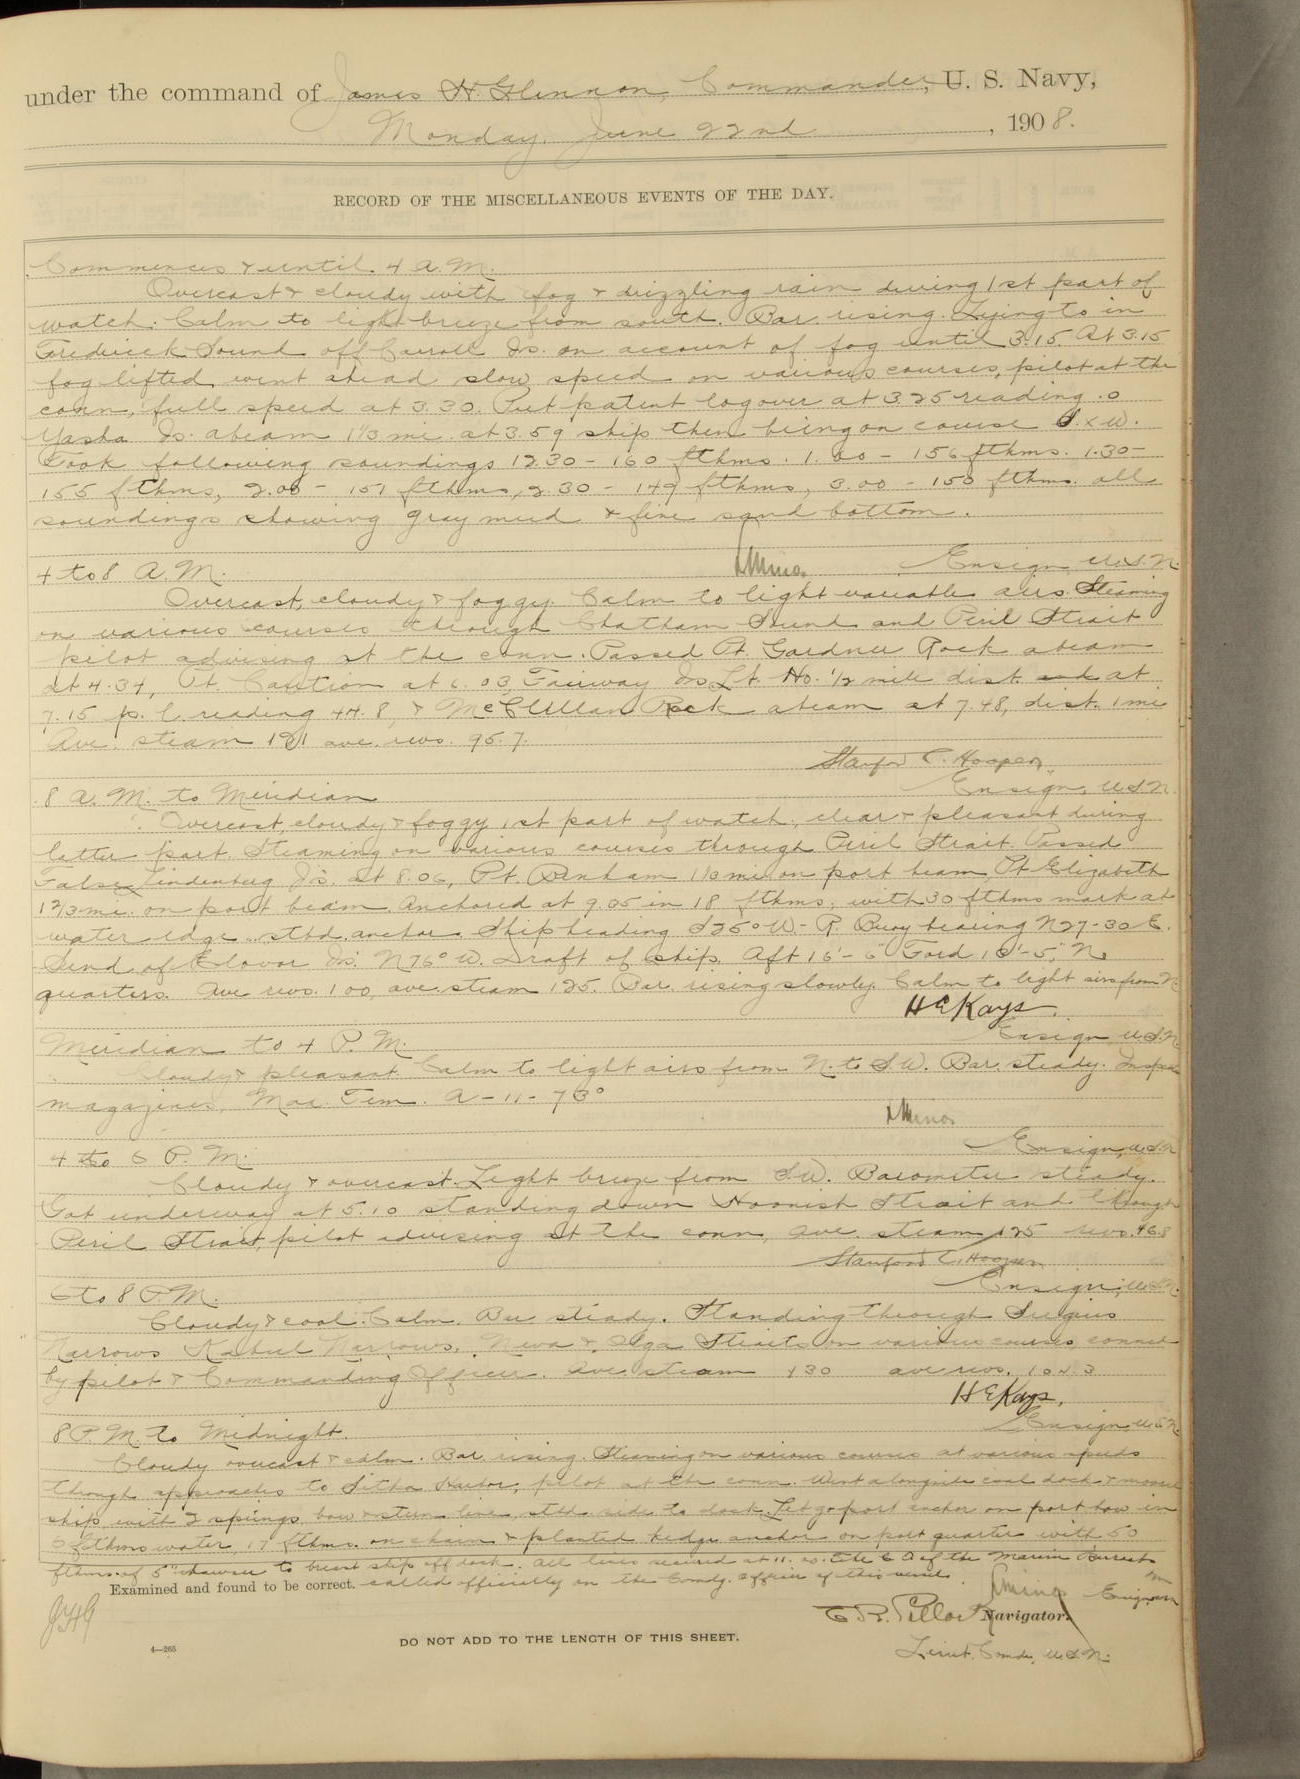 under the command of James H. Glennon, Commander, U. S. Navy,
Monday, June 22nd, 1908.
RECORD OF THE MISCELLANEOUS EVENTS OF THE DAY.
Commences & until 4 A.M.
Overcast & cloudy with fog & drizzling rain during 1st part of
watch. Calm to light breeze from south. Bar. rising. Lying to in
Frederick Sound off Carroll Is. on account of fog until 3.15. At 3.15
fog lifted, went ahead slow speed on various courses, pilot at the
conn, full speed at 3.30. Put patent log over at 3.25 reading .0
Yasha Is. abeam 1 1/3 mi. at 3.59 ship then being on course S.xW.
Took following soundings 12.30 - 160 fthms. 1.00 - 156 fthms. 1.30 -
155 fthms, 2.00 - 151 fthms, 2.30 - 149 fthms, 3.00 - 150 fthms. all
soundings showing gray mud & fine sand bottom.
Ensign U.S.N.
4 to 8 A.M.
Overcast, cloudy & foggy. Calm to light variable airs. Steaming
on various courses through Chatham Sound and Peril Strait
pilot advising at the conn. Passed Pt. Gardner Rock abeam
at 4.34, Pt. Caution at 6.03, Fairway Is. Lt. Ho. 1/2 mile dist. at
7.15 p. l. reading 44.8, & McClellan Rock abeam at 7.48, dist. 1 mi
Ave. steam 121 ave. revs. 95.7.
Stanford C. Hooper,
Ensign, U.S.N.
8 A.M. to Meridian
Overcast, cloudy & foggy 1st part of watch, clear & pleasant during
latter part. Steaming on various courses through Peril Strait. Passed
False Lindenberg Is. at 8.06, Pt. Benham 1 1/3 mi on port beam, Pt. Elizabeth
1 2/3 mi. on port beam. Anchored at 9.05 in 18 fthms, with 30 fthms mark at
water edge, stbd. anchor. Ship heading S25°W. - R. Buoy bearing N27-30E.
End of Elovoi Is. N76°W. Draft of ship. Aft 16'-6" Ford 15'-5". No
quarters. Ave revs. 100, ave. steam 125. Bar. rising slowly. Calm to light airs from N
H E Kays
Ensign U.S.N.
Meridian to 4 P.M.
Cloudy & pleasant. Calm to light airs from N. to S.W. Bar. steady. Inspected
magazines, Max. Tem. A-11-78°
Ensign, U.S.N
4 to 6 P.M.
Cloudy & overcast. Light breeze from S.W. Barometer steady.
Got underway at 5.10 standing down Hoonish Strait and through
Peril Strait, pilot advising at the conn, ave. steam 125 revs. 96.8
Stanford C. Hooper
Ensign, U.S.N.
6 to 8 P.M.
Cloudy & cool. Calm. Bar steady. Standing through Sergius
Narrows Kakul Narrows, Neva & Olga Straits on various courses conned
by pilot & Commanding Officer. Ave steam 130 ave revs. 104.3
H E Kays,
Ensign, U.S.N.
8 P.M. to Midnight.
Cloudy overcast & calm. Bar. rising. Steaming on various courses at various speeds
through approaches to Sitka Harbor, pilot at the conn. Went alongside coal dock & moored
ship with 2 springs, bow & stern line, stbd side to dock. Let go port anchor on port bow in
6 fthms water, 17 fthms. on chain & planted kedge anchor on port quarter with 50
fthms. of 5" hawser to breast ship off dock. All lines secured at 11.20. The C O of the Marine Barracks
called officially on the Comdg. officer of this vessel.
Ensign, USN
Examined and found to be correct.
Navigator.
Lieut. Comdr., U.S.N.
4—265
DO NOT ADD TO THE LENGTH OF THIS SHEET.